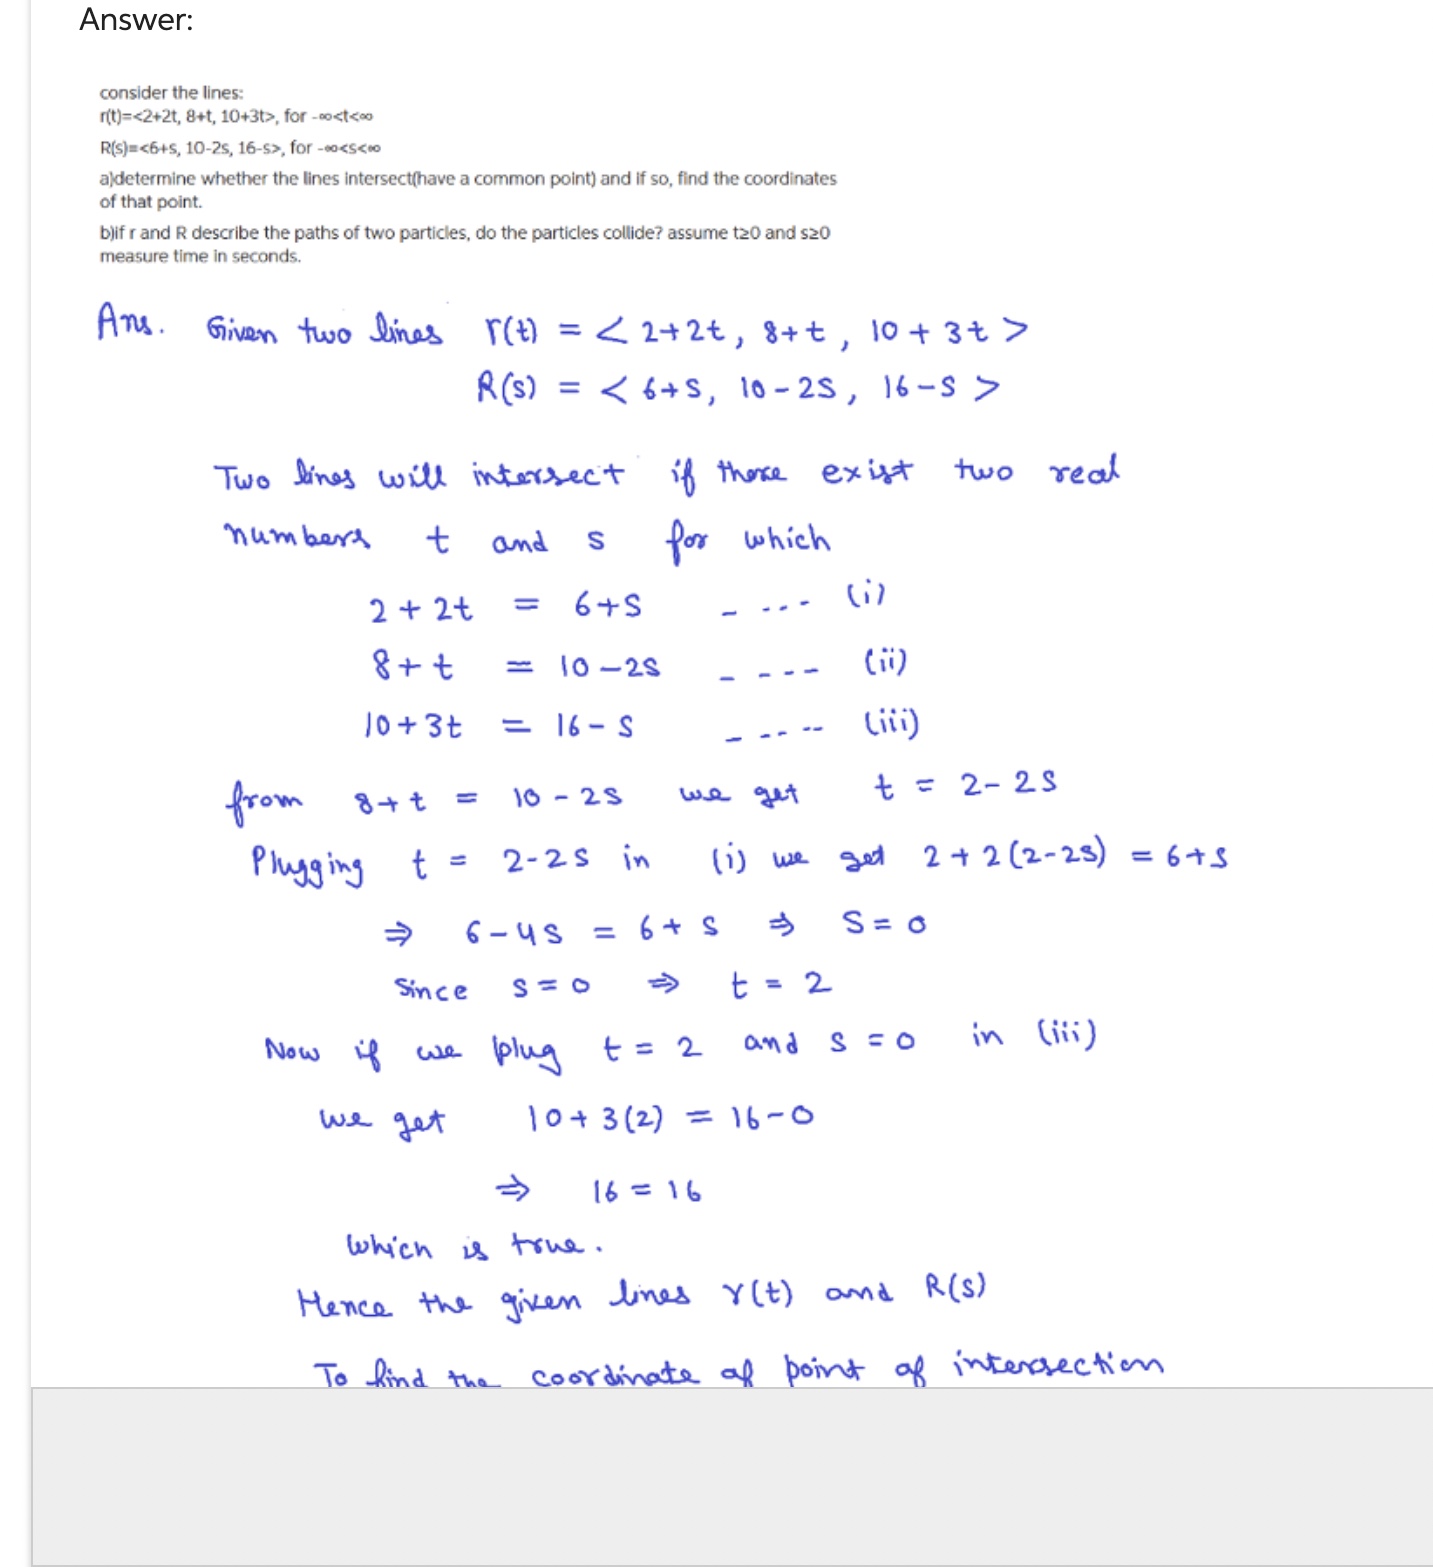 Answer:
consider the lines:
r(t)=<2+2t, 8+t, 10+3t>, for -∞<t<∞
R(s)=<6+s, 10-2s, 16-s>, for -∞<s<∞
a)determine whether the lines intersect(have a common point) and if so, find the coordinates
of that point.
b)if r and R describe the paths of two particles, do the particles collide? assume t≥0 and s≥0
measure time in seconds.
Ans. Given two lines r(t) = < 2+2t, 8+t, 10+3t >
R(s) = < 6+s, 10-2s, 16-s >
Two lines will intersect if there exist two real
numbers t and s for which
2+2t = 6+s - --- (i)
8+t = 10-2s - --- (ii)
10+3t = 16-s - ---- (iii)
from 8+t = 10-2s we get t = 2-2s
Plugging t = 2-2s in (i) we get 2+2(2-2s) = 6+s
⇒ 6-4s = 6+s ⇒ s=0
Since s=0 ⇒ t = 2
Now if we plug t = 2 and s = 0 in (iii)
we get 10+3(2) = 16-0
⇒ 16 = 16
which is true.
Hence the given lines r(t) and R(s)
To find the coordinate of point of intersection